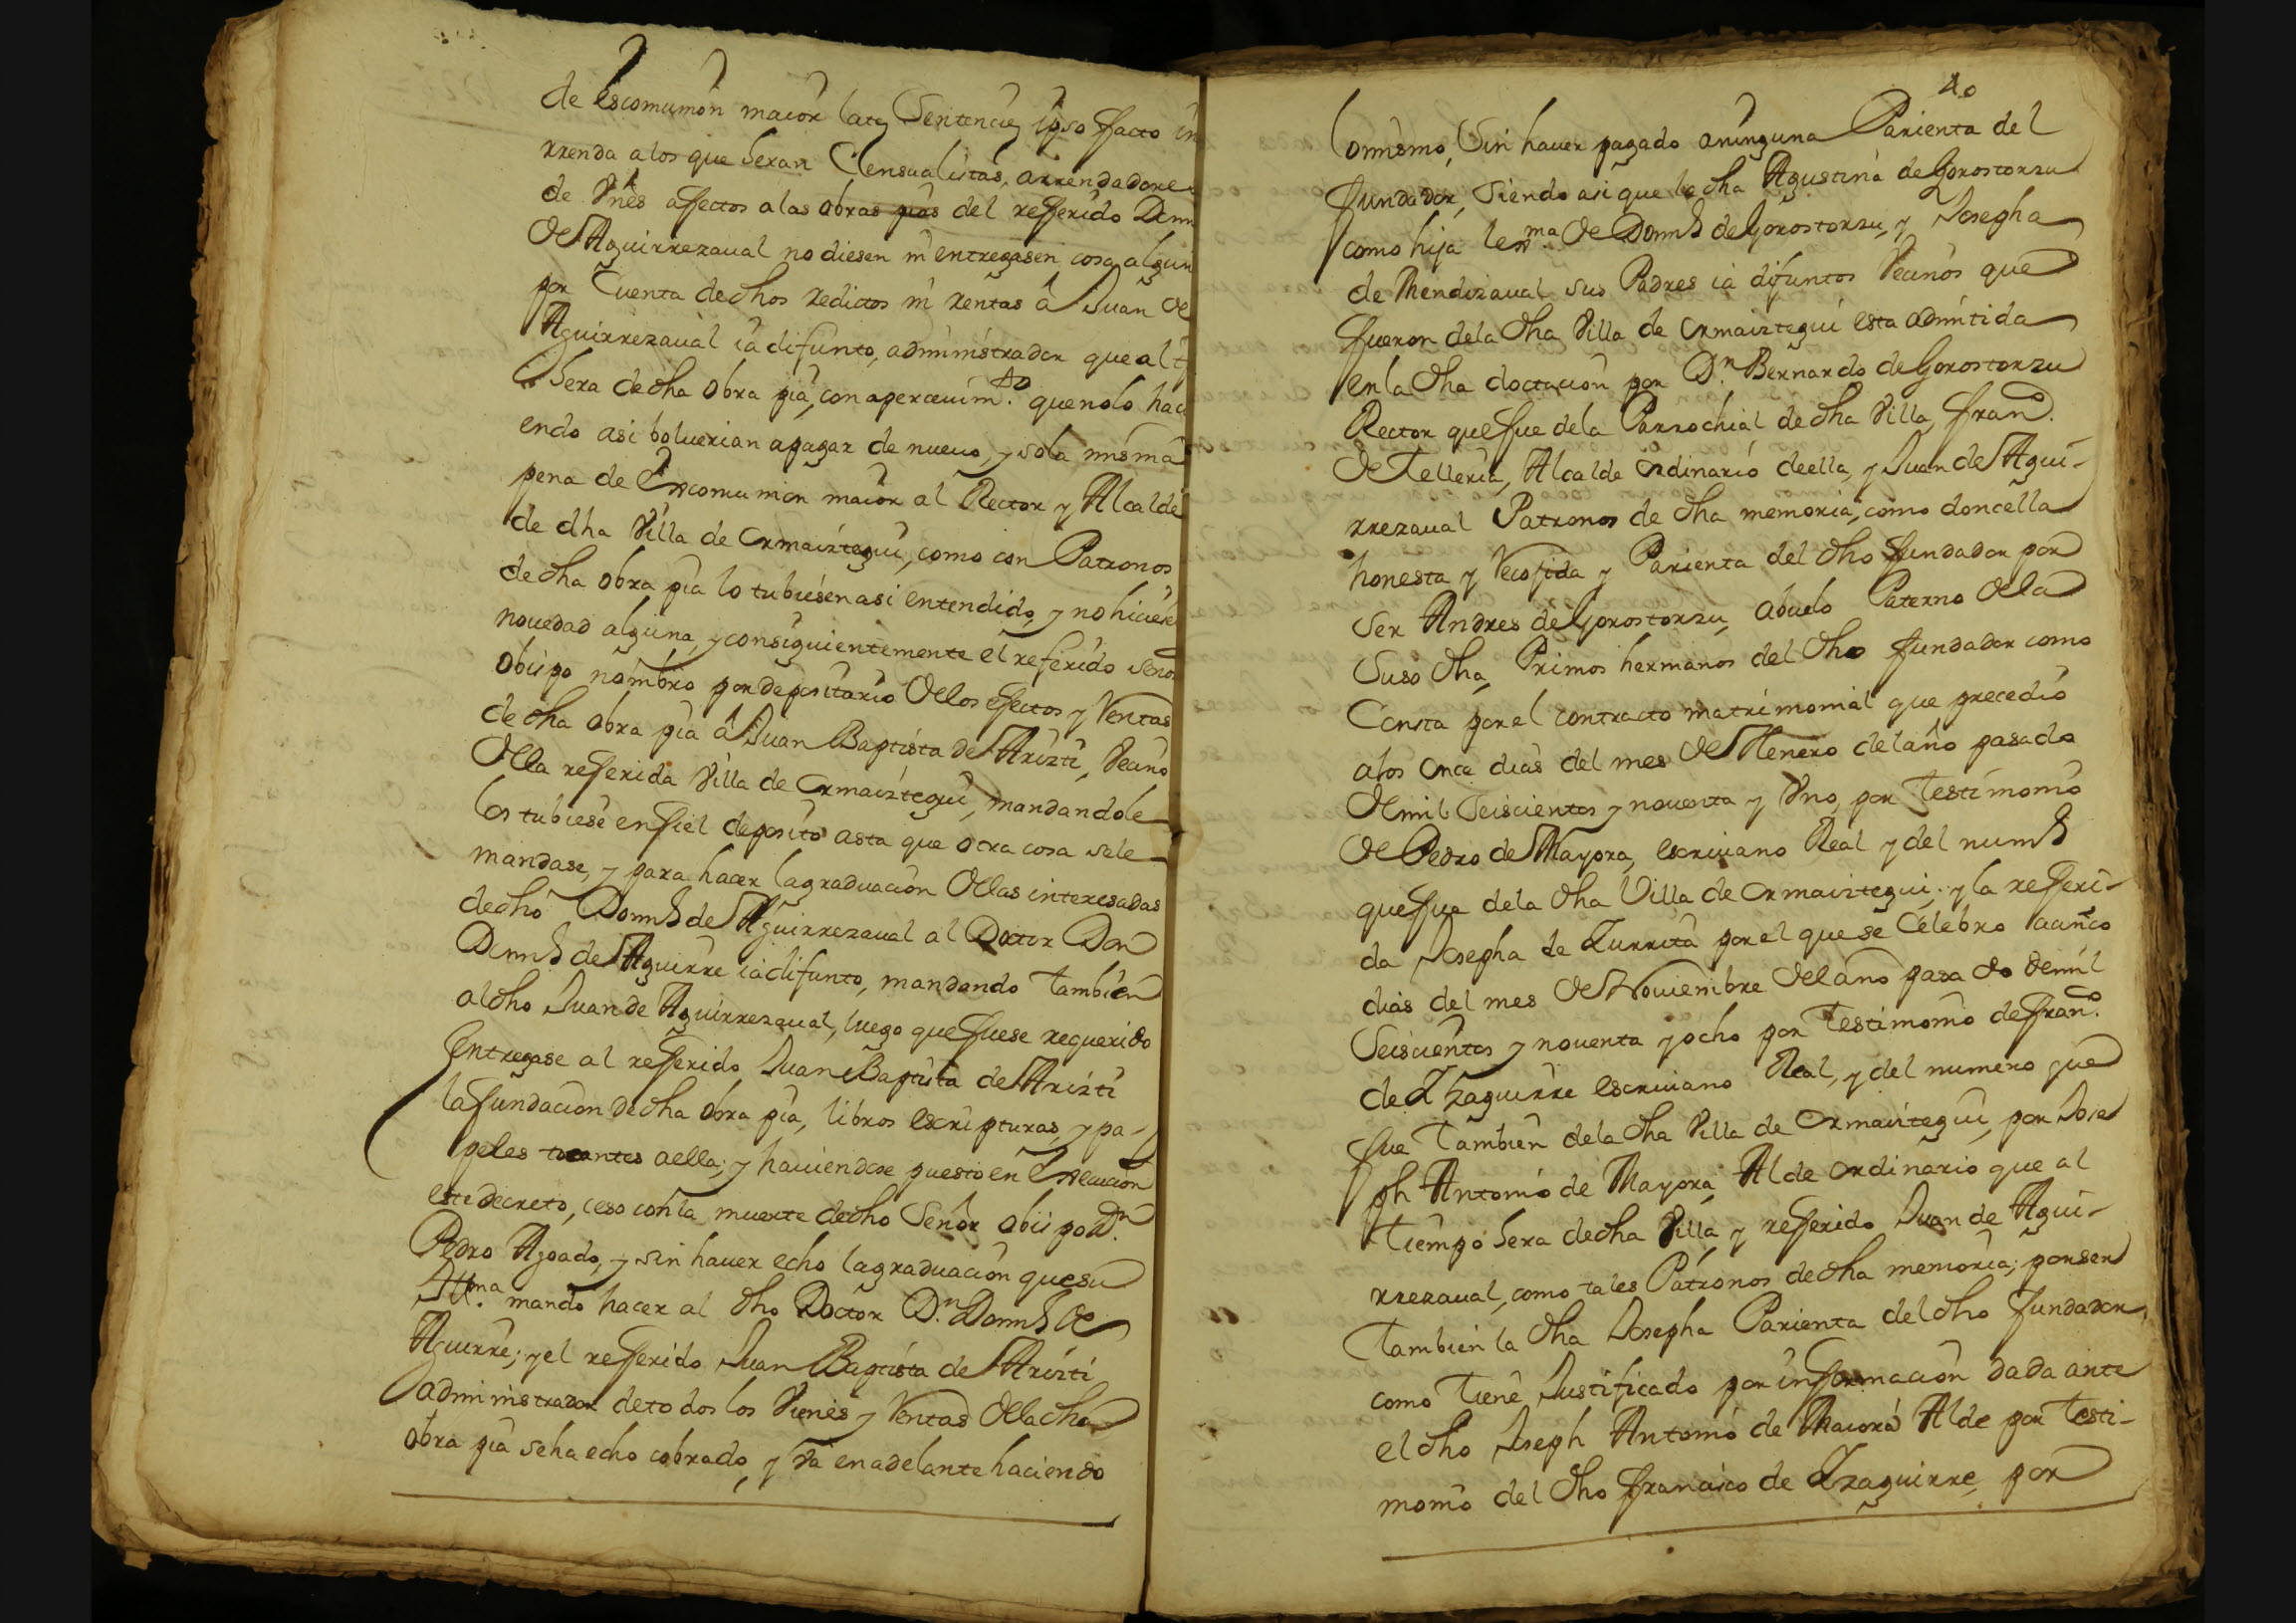 de escomunion maior late Sentencie ipso facto in
rrenda a los que seran Censualistas, arrendadores
de Vnēs affectos a las obras pias del refferido Domī
de Aguirrezaual no diesen ni entregasen cosa algun
por Cuenta de dhos redictos ni rentas á Juan de
Aguirrezaual ia difunto, administrador que al
Sera de dha obra pia, con aperceuim.to que no lo haci
endo asi boluerian a pagar de nueuo, y so la misma
pena de Excomunion maior al Rector y Alcalde
de dha Villa de Ormaiztegui, como con Patronos
de dha obra pia lo tubiesen asi entendido, y no hiciese
nouedad alguna, y consiguientemente el referido Señor
Obispo nombro por depositario de los efectos y Rentas
de dha obra pia á Juan Baptista de Arizti, Vecino
de la refferida Villa de Ormaiztegui, mandandole
los tubiese en fiel deposito asta que otra cosa se le
mandase, y para hacer la graduacion de las interesadas
de dho Domīᵒ de Aguirrezaual al Doctor Don
Domīᵒ de Aguirre ia difunto, mandando tambien
al dho Juan de Aguirrezaual, luego que fuese requerido
Entregase al refferido Juan Baptista de Arizti
la fundacion de dha obra pia, libros escripturas, y pa-
peles tocantes a ella; y hauiendose puesto en Execucion
este decreto, ceso con la muerte de dho Señor obispo D.n
Pedro Agoado, y sin hauer echo la graduacion que su
Ill.ma mando hacer al dho Doctor D.n Domīᵒ de
Aguirre; y el refferido Juan Baptista de Arizti
administrador de todos los Vienes y Rentas de la dha
obra pia se ha echo cobrado, y Va en adelante haciendo
40
lo mismo, Sin hauer pagado a ninguna Parienta del
fundador, Siendo asi que la dha Agustina de Gorostorzu
como hija lex.ma de Domīᵒ de Gorostorzu, y Josepha
de Mendizaual sus Padres ia difuntos Vecinos que
fueron de la dha Villa de Ormaiztegui esta admitida
en la dha doctacion por D.n Bernardo de Gorostorzu
Rector que fue de la Parrochial de dha Villa, fran.co
de Telleria, Alcalde ordinario de ella, y Juan de Agui-
rrezaual Patronos de dha memoria, como doncella
honesta y Recojida y Parienta del dho fundador por
Ser Andres de Gorostorzu, abuelo Paterno de la
Suso dha, Primos hermanos del dho fundador como
Consta por el contracto matrimonial que precedio
a los once dias del mes de Henero del año pasado
de mil Seiscientos y nouenta y Vno, por testimonio
de Pedro de Mayora, escriuano Real y del numᵒ
que fue de la dha Villa de Ormaiztegui; y la refferi-
da Josepha de Zurrita por el que se Celebro a cinco
dias del mes de Nouiembre del año pasado de mil
Seiscientos y nouenta y ocho por testimonio de fran.co
de Yzaguirre escriuano Real, y del numero que
fue tambien de la dha Villa de Ormaiztegui, por Jose
ph Antonio de Mayora Alde ordinario que al
tiempo Sera de dha Villa y refferido Juan de Agui-
rrezaual, como tales Patronos de dha memoria; por ser
tambien la dha Josepha Parienta del dho fundador,
como tiene Justificado por informacion dada ante
el dho Joseph Antonio de Maiora Alde por testi-
monio del dho francisco de Yzaguirre, por